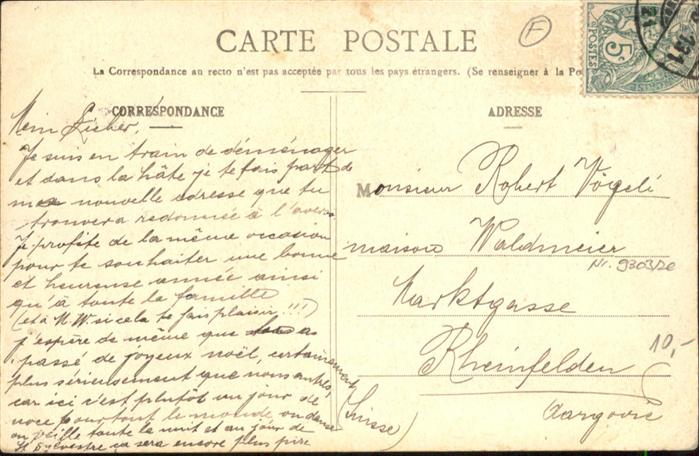 CARTE POSTALE
F
La Correspondance au recto n'est pas acceptée par tous les pays étrangers. (Se renseigner à la Po
5c
POSTES
CORRESPONDANCE
ADRESSE
Mein Lieber,
Je suis en train de déménager
et dans la hâte je te fais part de
ma nouvelle adresse que tu
trouvera redonnée à l'avers
Je profite de la même occasion
pour te souhaiter une bonne
et heureuse année ainsi
qu'à toute la famille
(et à M W si cela te fais plaisir, !!!)
j'espère de même que as
passé de joyeux noël, certainement
plus sérieusement que nous autres,
car ici c'est plutôt un jour de
noce pour tout le monde, on danse
on veille toute la nuit et au jour de
St Sylvestre ça sera encore plus pire
Monsieur Robert Vögelé
maison Waldmeier
Nr. 9303/20
Marktgasse
10,-
Rheinfelden
(Suisse)
Aargovie